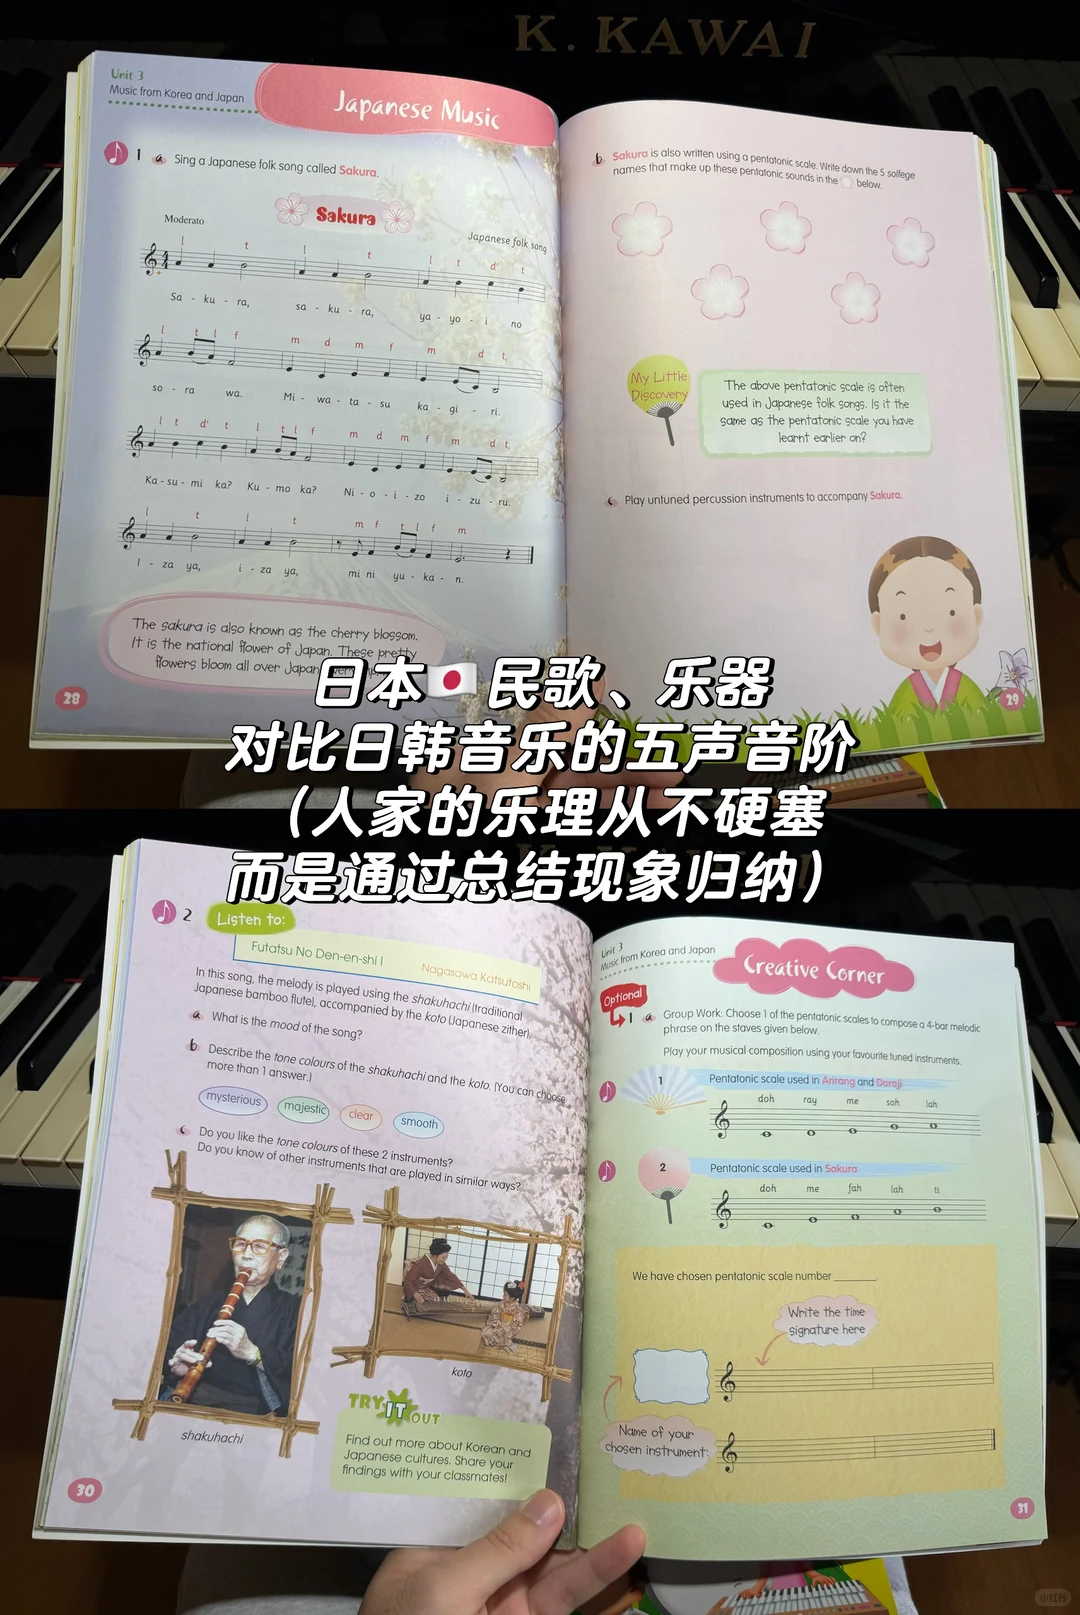 K. KAWAI
Unit 3
Music from Korea and Japan
Japanese Music
1 a Sing a Japanese folk song called Sakura.
Sakura
Moderato
Japanese folk song
l t l t l t d' t
Sa - ku - ra, sa - ku - ra, ya - yo - i no
l t l f m d m f m d t,
so - ra wa. Mi - wa - ta - su ka - gi - ri.
l t d' t l t l f m d m f m d t,
Ka - su - mi ka? Ku - mo ka? Ni - o - i - zo i - zu - ru.
l t l t m f t l f m
I - za ya, i - za ya, mi ni yu - ka - n.
The sakura is also known as the cherry blossom.
It is the national flower of Japan. These pretty
flowers bloom all over Japan
28
b Sakura is also written using a pentatonic scale. Write down the 5 solfege
names that make up these pentatonic sounds in the below.
My Little
Discovery
The above pentatonic scale is often
used in Japanese folk songs. Is it the
same as the pentatonic scale you have
learnt earlier on?
c Play untuned percussion instruments to accompany Sakura.
29
日本🇯🇵民歌、乐器
对比日韩音乐的五声音阶
（人家的乐理从不硬塞
而是通过总结现象归纳）
2 Listen to:
Futatsu No Den-en-shi I
Nagasawa Katsutoshi
In this song, the melody is played using the shakuhachi (traditional
Japanese bamboo flute), accompanied by the koto (Japanese zither).
a What is the mood of the song?
b Describe the tone colours of the shakuhachi and the koto. (You can choose
more than 1 answer.)
mysterious majestic clear smooth
c Do you like the tone colours of these 2 instruments?
Do you know of other instruments that are played in similar ways?
shakuhachi
koto
TRY IT OUT
Find out more about Korean and
Japanese cultures. Share your
findings with your classmates!
30
Unit 3
Music from Korea and Japan
Creative Corner
Optional
1 a Group Work: Choose 1 of the pentatonic scales to compose a 4-bar melodic
phrase on the staves given below.
Play your musical composition using your favourite tuned instruments.
1 Pentatonic scale used in Arirang and Doraji
doh ray me soh lah
2 Pentatonic scale used in Sakura
doh me fah lah ti
We have chosen pentatonic scale number ______.
Write the time
signature here
Name of your
chosen instrument:
31
小红书